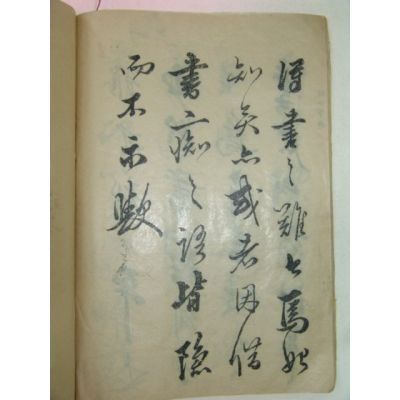 得書之難也焉始
知矣亦或者因借
書二痴之語皆隱
而不示歟